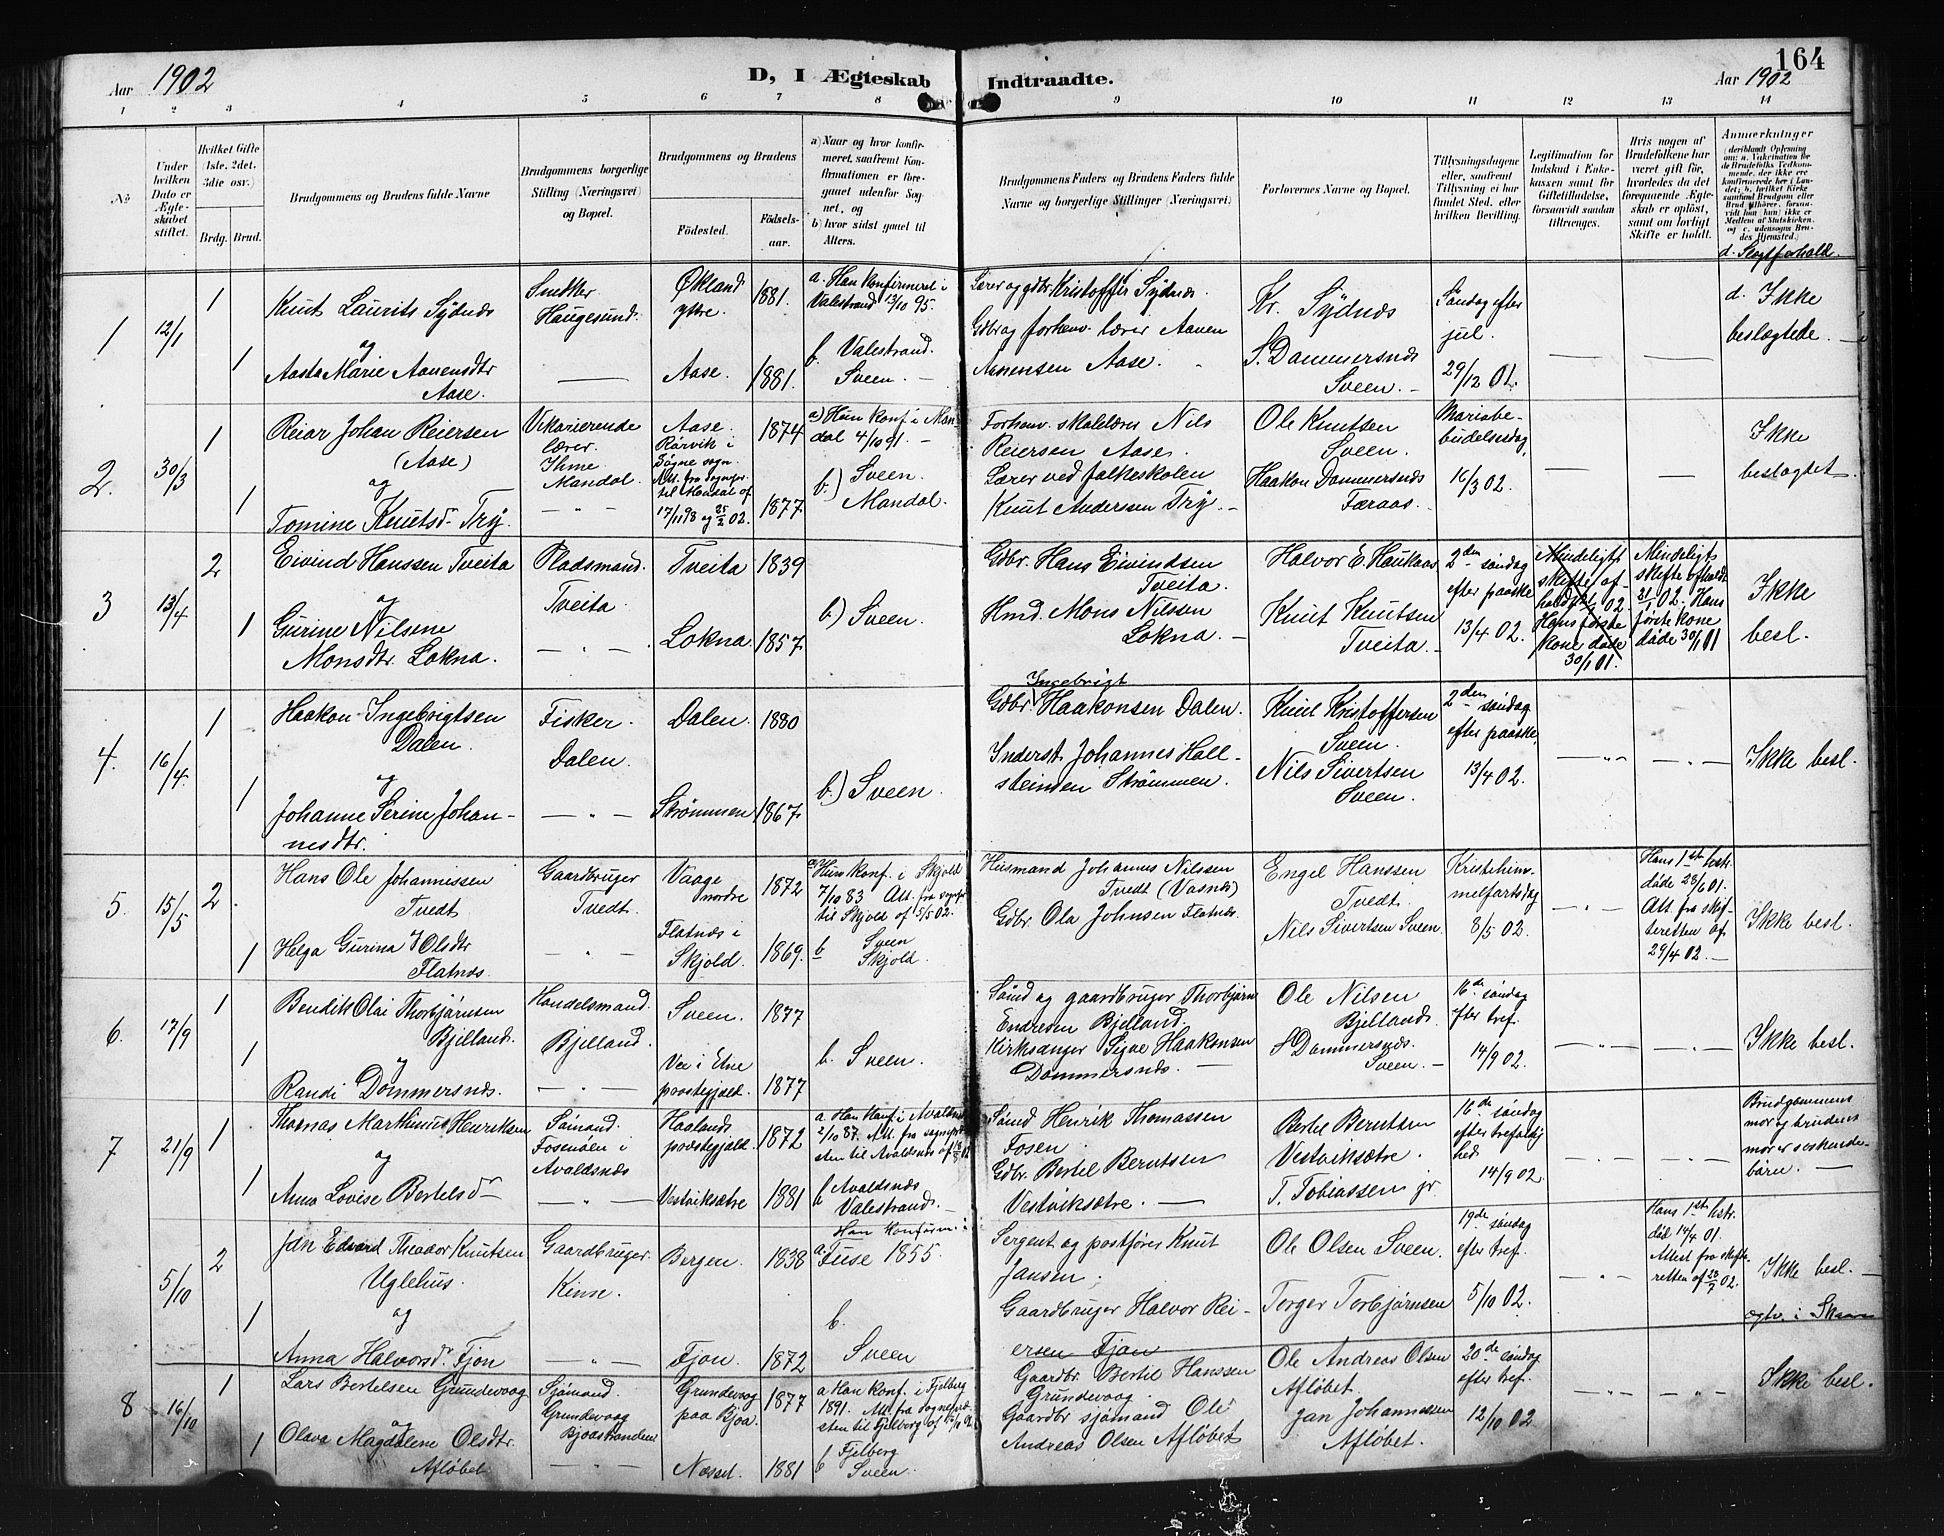 164
Aar 1902
D, I Ægteskab Indtraadte.
Aar 1902
1 2 3 4 5 6 7 8 9 10 11 12 13 14
No
Under hvilken Dato er Ægteskabet stiftet.
Hvilket Gifte (1ste, 2det, 3die osv.)
Brdg. Brud.
Brudgommens og Brudens fulde Navne
Brudgommens borgerlige Stilling (Næringsvei) og Bopæl.
Brudgommens og Brudens
Fødested.
Fødselsaar.
a) Naar og hvor konfirmeret, saafremt Konfirmationen er foregaaet udenfor Sognet, og
b) hvor sidst gaaet til Alters.
Brudgommens Faders og Brudens Faders fulde Navne og borgerlige Stillinger (Næringsvei)
Forlovernes Navne og Bopæl.
Tillysningsdagene eller, saafremt Tillysning ei har fundet Sted, efter hvilken Bevilling.
Legitimation for Indskud i Enkekassen samt for Giftetilladelse, forsaavidt saadan tiltrænges.
Hvis nogen af Brudefolkene har været gift før, hvorledes da det foregaaende Ægteskab er opløst, samt om lovligt Skifte er holdt.
Anmærkninger
d. Slegtforhold.
1
12/1
1
Knut Laurits Sydnæs
og
Snekker
Haugesund.
Økland ytre.
1881.
a. Han konfirmeret i
Valestrand 13/10 95.
Lærer og gdbr. Kristoffer Sydnæs.
Kr. Sydnæs
Søndag efter
jul.
d. Ikke
beslægtede. —
1
Aasta Marie Aanensdtr
Aase.
Aase.
1881.
b. Valestrand.
Sveen. —
Gdbr og forhenv. lærer Aanen
Aanensen Aase.
S. Dommersnæs
Sveen. —
29/12 01.
2.
30/3
1
Reiar Johan Reiersen
(Aase)
og
Vikarierende
lærer.
Ihme
Mandal.
Aase.
1874
a) Hun konf. i Mandal
4/10 91. —
Forhenv. skolelærer Nils
Reiersen Aase.
Ole Knutsen
Sveen.
Mariabebudelsesdag,
Ikke
beslægtet
1
Tomine Knutsdr Try.
Rørvik i
Søgne sogn.
Att. fra sognepr.
til Mandal af
17/11 98 og 25/2 02.
1877
b.) Sveen.
Mandal.
Lærer ved folkeskolen
Knut Andersen Try. —
Haakon Dommersnæs
Færaas.
16/3 02.
3
13/4
2
Eivind Hanssen Tveita
og
Pladsmand.
Tveita.
Tveita
1839
b.) Sveen.
Gdbr. Hans Eivindsen
Tveita.
Halvor E. Haukaas
2den søndag
efter paaske
Mindeligt
skifte afholdt
Hans første
kone døde
30/1 01.
Mindeligt
skifte afholdt
31/1 02. Hans
første kone
døde 30/1 01
Ikke
besl.
1
Gurine Nilsine
Monsdtr. Lokna.
Lokna.
1857
Hmd. Mons Nilsen
Lokna. —
Knut Knutsen
Tveita.
13/4 02.
4.
16/4.
1
Haakon Ingebrigtsen
Dalen.
og
Fisker.
Dalen.
Dalen.
1880
b.) Sveen.
Ingebrigt
Gdbr. Haakonsen Dalen.
Knut Kristoffersen
Sveen.
2den søndag
efter paaske,
Ikke besl.
1
Johanne Serine Johannesdtr.
Strømmen
1867.
Inderst Johannes Hallsteinsen
Strømmen.
Nils Sivertsen
Sveen.
13/4 02.
5.
15/5
2
Hans Ole Johannessen
Tvedt
Gaardbruger
Tvedt.
Vaage
nordre
1872
a) Hun konf. i Skjold
7/10 83 Att. fra sognepr
til Skjold af 5/5 02.
Husmand Johannes Nilssen
Tvedt (Vasnes)
Engel Hanssen
Tvedt.
Kristihimmelfartsdag
8/5 02.
Hans 1ste hstr.
døde 28/6 01.
Att. fra skifteretten
af
29/4 02. —
Ikke besl.
1
Helga Gurina Olsdtr
Flatnæs.
Flatnæs i
Skjold.
1869.
b Sveen
Skjold.
Gdbr. Ola Johnsen Flatnæs.
Nils Sivertsen Sveen.
6.
17/9
1
Bendik Olai Thorbjørnsen
Bjelland.
og
Handelsmand.
Bjelland.
Sveen.
1877
b. Sveen.
Sømd og gaardbruger Thorbjørn
Endresen Bjelland.
Ole Nilsen
Bjelland.
16de søndag
efter tref.
14/9 02.
Ikke besl.
1
Randi Dommersnæs.
Vee i Etne
præstegjeld.
1877
Kirksanger Sjae Haakonsen
Dommersnæs. —
S Dommersnæs.
Sveen. —
7
21/9
1
Thomas Marthinus Henriksen
og
Sømand.
Fosenøen i
Avaldsnæs
Haalands
præstegjæld.
1872
a Han konf. i Avaldsnæs
2/10 87. Att. fra sognepresten
til Avaldsnæs
Sømd Henrik Thomassen
Fosen
Bertel Berntsen
Vestviksætre.
16de søndag
efter trefoldighed
14/9 02.
Brudgommens
mor og brudens
mor er søskendebarn. —
1
Anna Lovise Bertelsdr
Vestviksætre
1881
b Avaldsnæs
Valestrand.
Gdbr. Bertel Berntsen
Vestviksætre. —
T. Tobiassen jr.
5/10
2
Jan Edvard Theodor Knutsen
Uglehus.
og
Gaardbruger.
Kinne.
Bergen.
1838
Han konfirm. i
a. Fuse 1855.
Sergent og postfører Knut
Jansen.
Ole Olsen Sveen.
19de søndag
efter tref.
5/10 02.
Hans 1ste hstr.
død 14/4 01.
Attest fra skifteretten
af 02.
Ikke besl. —
1
Anna Halvorsdr Fjon
Fjon.
1872
b.
Sveen
Gaardbruger Halvor Reiersen
Fjon
Torger Torbjørnsen
8
16/10
1
Lars Bertelsen Grundevaag
og
Sjømand.
Grundevaag
Bjoastranden
Grundevaag
paa Bjoa.
1877
a Han konf. i Fjelberg
1891. Att. fra sognepræsten
til Fjelberg af
Gaardbr. Bertel Hanssen
Grundevaag.
Ole Andreas Olsen
Afløbet.
20de søndag
efter tref.
12/10 02
Ikke besl.
1
Olava Magdalene Olsdtr.
Afløbet
Næsset.
1881
b Fjelberg
Sveen.
Gaardbr sjømand Ole
Andreas Olsen Afløbet
Jan Johannessen
Afløbet.